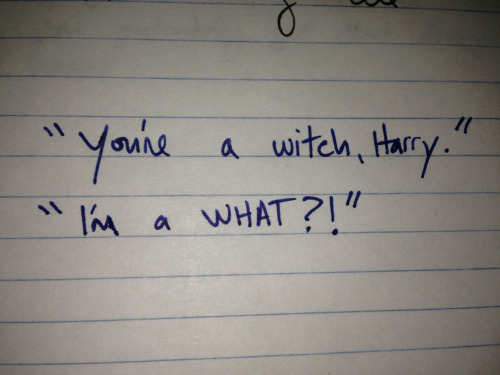 "You're a witch, Harry."
"I'm a WHAT?!"